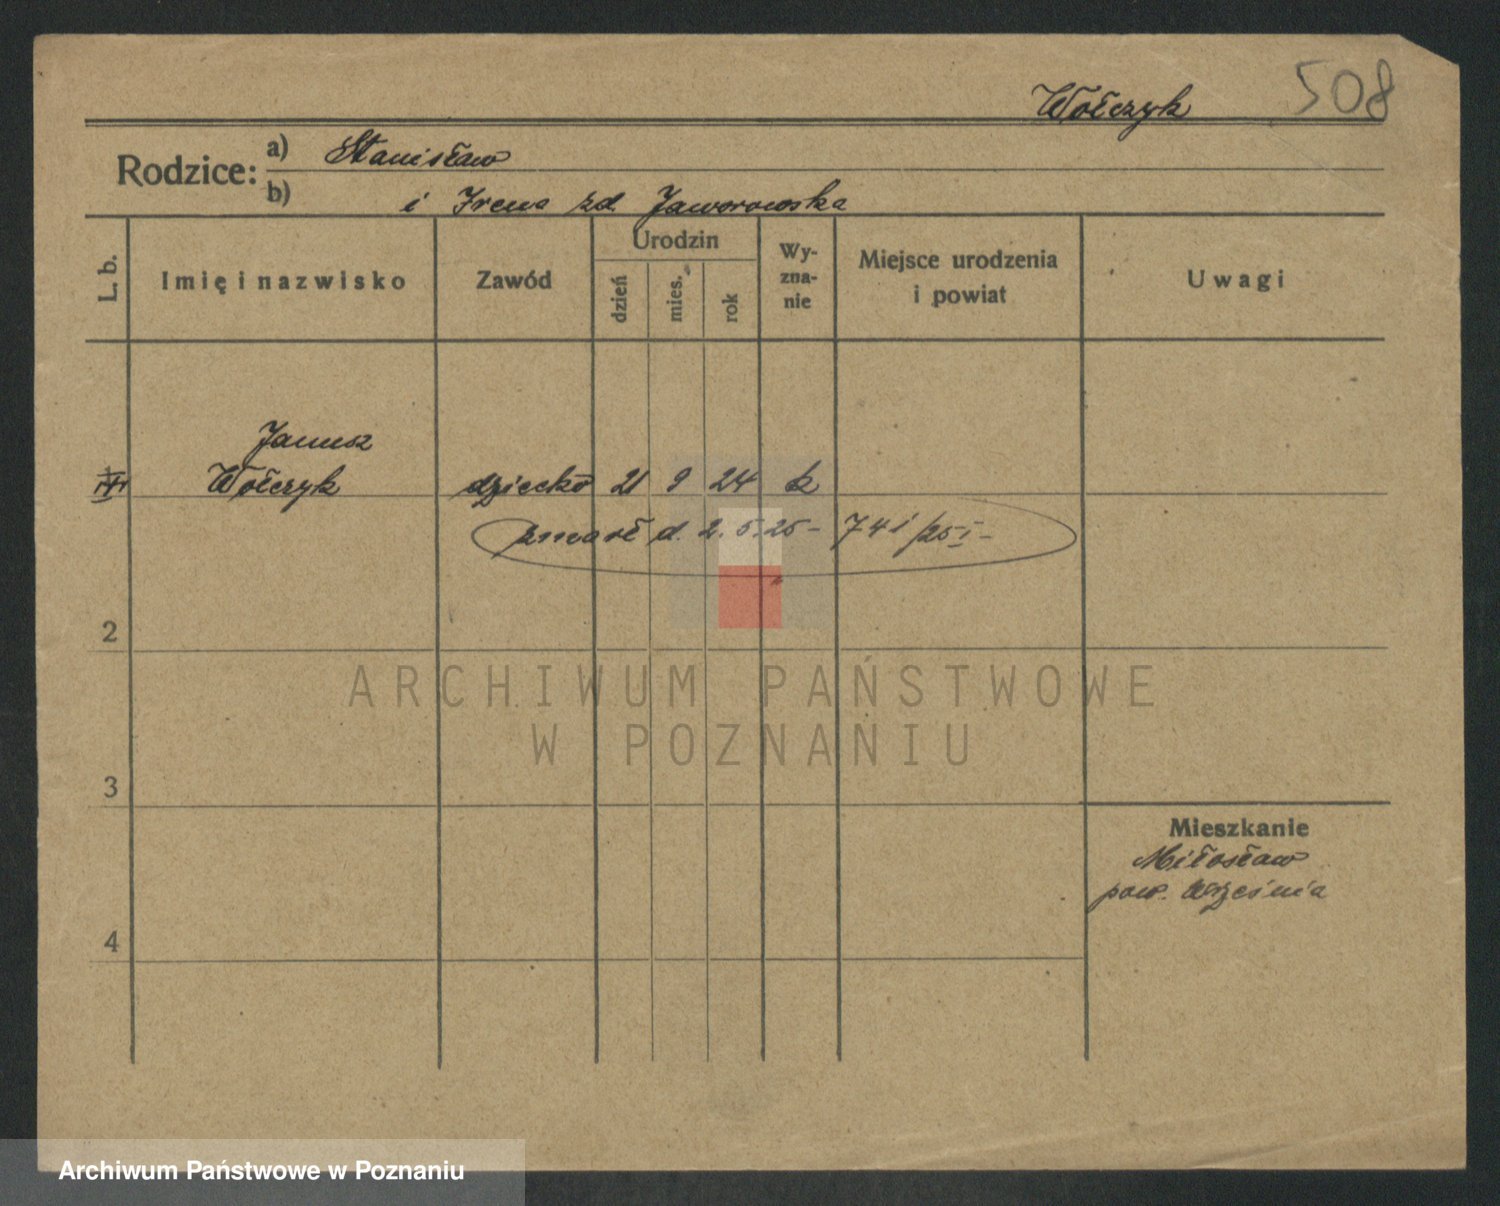 Wołczyk 508
Rodzice: a) Stanisław
b) i Irena zd. Jaworowska
L. b. Imię i nazwisko Zawód Urodzin dzień mies. rok Wyznanie Miejsce urodzenia i powiat Uwagi
Janusz
Wołczyk dziecko 21 9 24 k
zmarł d. 2. 5. 25 - 741/25
2
ARCHIWUM PAŃSTWOWE
W POZNANIU
3
Mieszkanie
Miłosław
pow. Września
4
Archiwum Państwowe w Poznaniu